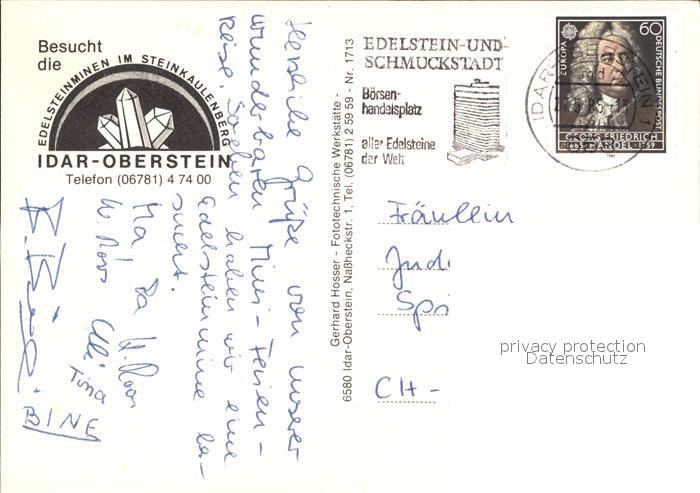 Besucht
die
EDELSTEINMINEN IM STEINKAULENBERG
IDAR-OBERSTEIN
Telefon (06781) 4 74 00
Herzliche Grüße von unserer
wunderbaren Mini-Ferien-
Reise. Soeben haben wir eine
Edelsteinmine be-
sucht.
BINE
Gerhard Hosser - Fototechnische Werkstätte -
6580 Idar-Oberstein, Naßheckstr. 1, Tel. (06781) 2 59 59 - Nr. 1713
EDELSTEIN-UND-
SCHMUCKSTADT
Börsen-
handelsplatz
aller Edelsteine
der Welt
IDAR-OBERSTEIN 1
EUROPA
60
DEUTSCHE BUNDESPOST
GEORG FRIEDRICH
HÄNDEL
1985
Fräulein
Jud
Spi
CH -
privacy protection
Datenschutz